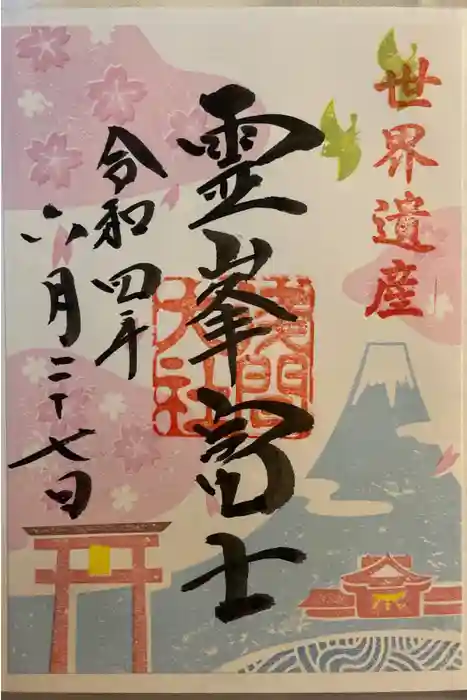 世界遺産
霊峯富士
淺間
大社
令和四年
六月二十七日